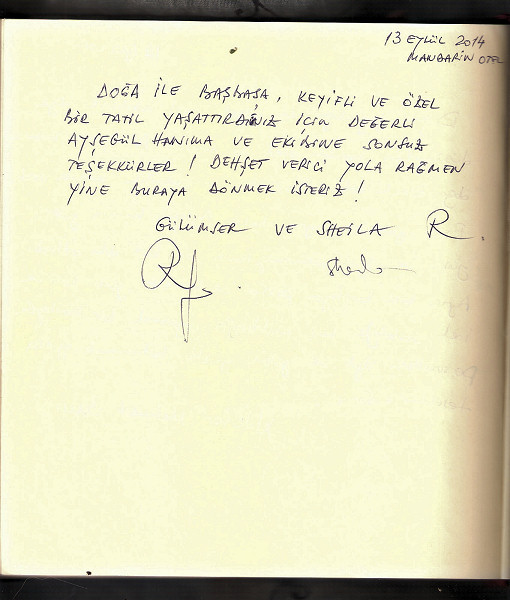 13 EYLÜL 2014
MANDARİN OTEL
DOĞA İLE BAŞBAŞA, KEYİFLİ VE ÖZEL
BİR TATİL YAŞATTIRDIĞINIZ İÇİN DEĞERLİ
AYŞEGÜL HANIMA VE EKİBİNE SONSUZ
TEŞEKKÜRLER! DEHŞET VERİCİ YOLA RAĞMEN
YİNE BURAYA DÖNMEK İSTERİZ!
GÜLÜMSER VE SHEİLA R.